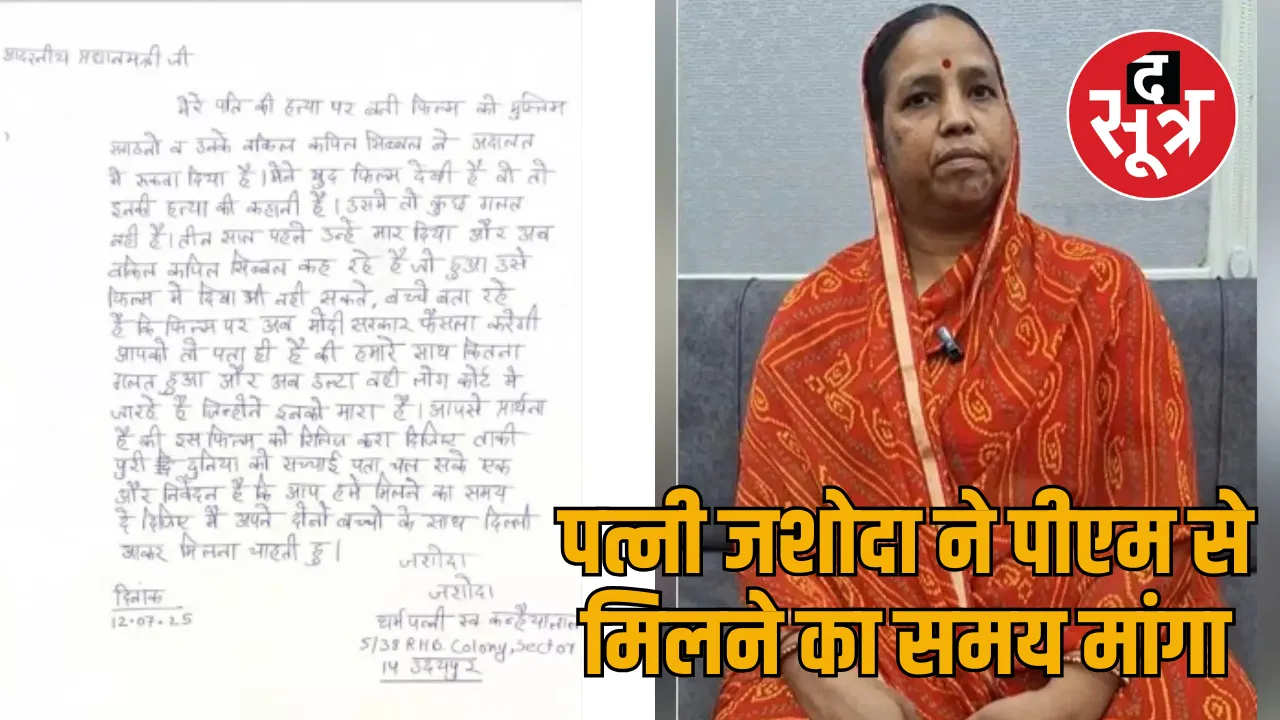 आदरनीय प्रधानमंत्री जी
मेरे पति की हत्या पर बनी फिल्म को मुस्लिम
संगठनो व उनके वकिल कपिल सिब्बल ने अदालत
मे रुकवा दिया है। मेने खुद फिल्म देखी है वो तो
इनकी हत्या की कहानी है। उसमे तो कुछ गलत
नही है। तीन साल पहले उन्हे मार दिया और अब
वकिल कपिल सिब्बल कह रहे है जो हुआ उसे
फिल्म मे दिखा भी नही सकते, बच्चे बता रहे
है कि फिल्म पर अब मोदी सरकार फैसला करेगी
आपको तो पता ही है की हमारे साथ कितना
गलत हुआ और अब उल्टा वही लोग कोर्ट मे
जा रहे है जिन्होने इनको मारा है। आपसे प्रार्थना
है की इस फिल्म को रिलिज करा दिजिए ताकी
पुरी दुनिया को सच्चाई पता चल सके एक
और निवेदन है कि आप हमे मिलने का समय
दे दिजिए मै अपने दोनो बच्चो के साथ दिल्ली
आकर मिलना चाहती हु।
जशोदा
जशोदा
दिनांक
12.07.25
धर्मपत्नी स्व कन्हैयालाल
5/38 RHB. Colony, Sector
14 उदयपुर
द
सूत्र
पत्नी जशोदा ने पीएम से
मिलने का समय मांगा